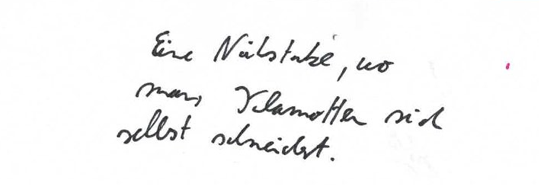 Eine Nähstube, wo
man Klamotten sich
selbst schneidert.